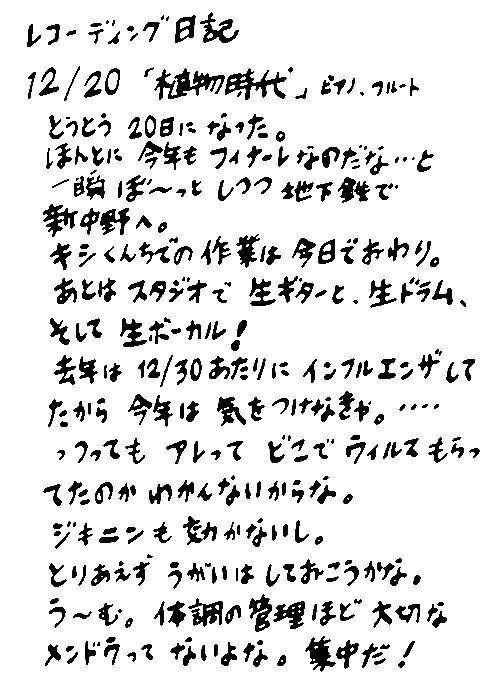 レコーディング日記
12/20 「植物時代」ピアノ、フルート
とうとう 20日に なった。
ほんとに 今年も フィナーレなのだな…と
一瞬 ぼ〜っと しつつ 地下鉄で
新中野へ。
キシくんちでの 作業は 今日でおわり。
あとは スタジオで 生ギターと、生ドラム、
そして 生ボーカル!
去年は 12/30あたりに インフルエンザして
たから 今年は 気をつけなきゃ。‥‥
っつっても アレって どこで ウィルスもらっ
てたのか わかんないからな。
ジキニンも 効かないし。
とりあえず うがいは しておこうかな。
う〜む。 体調の管理ほど 大切な
メンドウって ないよな。 集中だ!